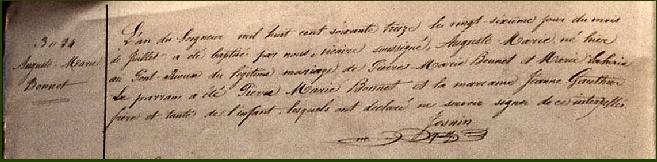 3 n 94
Auguste-Marie
Bonnet
L'an du Seigneur mil huit cent soixante treize le vingt-sixième jour du mois
de juillet a été baptisé par nous, vicaire soussigné, Auguste Marie, né hier
au du légitime mariage de Pierre Marie Bonnet et Marie
Le parrain a été Pierre Marie Bonnet et la marraine Jeanne Gauthier
frère et tante de l'enfant, lesquels ont déclaré ne savoir signer de ce